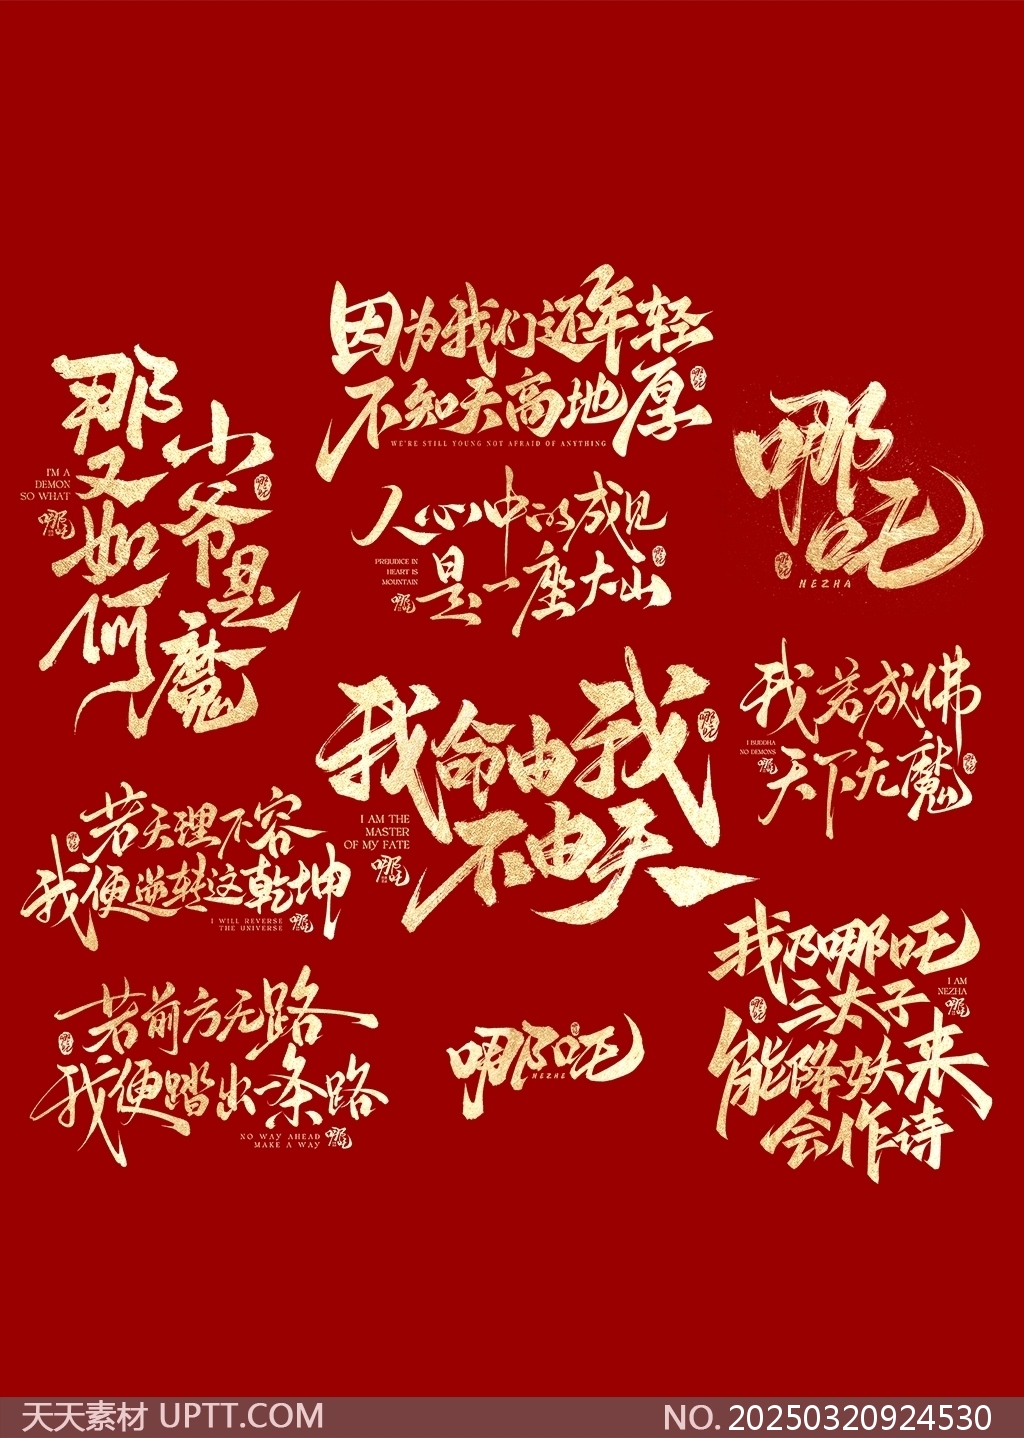 因为我们还年轻
不知天高地厚
WE'RE STILL YOUNG NOT AFRAID OF ANYTHING
哪吒
小爷是魔
那又如何
I'M A
DEMON
SO WHAT
哪吒
哪吒
哪吒
NEZHA
哪吒
人心中的成见
是一座大山
PREJUDICE IN
HEART IS
MOUNTAIN
哪吒
哪吒
我若成佛
天下无魔
I BUDDHA
NO DEMONS
哪吒
哪吒
我命由我
不由天
I AM THE
MASTER
OF MY FATE
哪吒
哪吒
若天理不容
我便逆转这乾坤
I WILL REVERSE
THE UNIVERSE
哪吒
哪吒
我乃哪吒
三太子
能降妖来
会作诗
I AM
NEZHA
哪吒
哪吒
若前方无路
我便踏出一条路
NO WAY AHEAD
MAKE A WAY
哪吒
哪吒
哪吒
NEZHE
天天素材 UPTT.COM
NO. 20250320924530